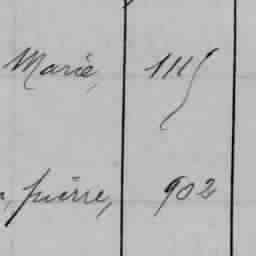 Marie, 1115
pierre, 902